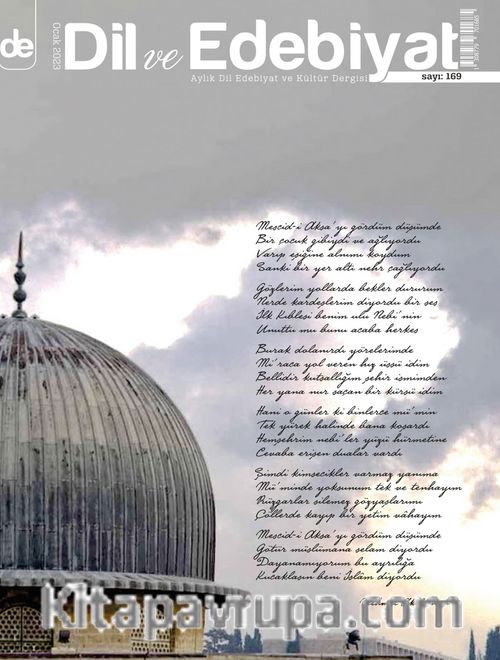 de
Ocak 2023
Dil ve Edebiyat
Aylık Dil Edebiyat ve Kültür Dergisi
sayı: 169
Mescid-i Aksa'yı gördüm düşümde
Bir çocuk gibiydi ve ağlıyordu
Varıp eşiğine alnımı koydum
Sanki bir yer altı nehr çağlıyordu
Gözlerim yollarda bekler dururum
Nerde kardeşlerim diyordu bir ses
İlk Kıblesi benim ulu Nebi'nin
Unuttu mu bunu acaba herkes
Burak dolanırdı yörelerimde
Mi'raca yol veren hız üssü idim
Bellidir kutsallığım şehir ismimden
Her yana nur saçan bir kürsü idim
Hani o günler ki binlerce mü'min
Tek yürek halinde bana koşardı
Hemşehrim nebi'ler yüzü hürmetine
Cevaba erişen dualar vardı
Şimdi kimsecikler varmaz yanıma
Mü'minde yoksunum tek ve tenhayım
Rüzgarlar silemez gözyaşlarımı
Çöllerde kayıp bir yetim vâhayım
Mescid-i Aksa'yı gördüm düşümde
Götür müslümana selam diyordu
Dayanamıyorum bu ayrılığa
Kucaklasın beni İslâm diyordu
kitapavrupa.com